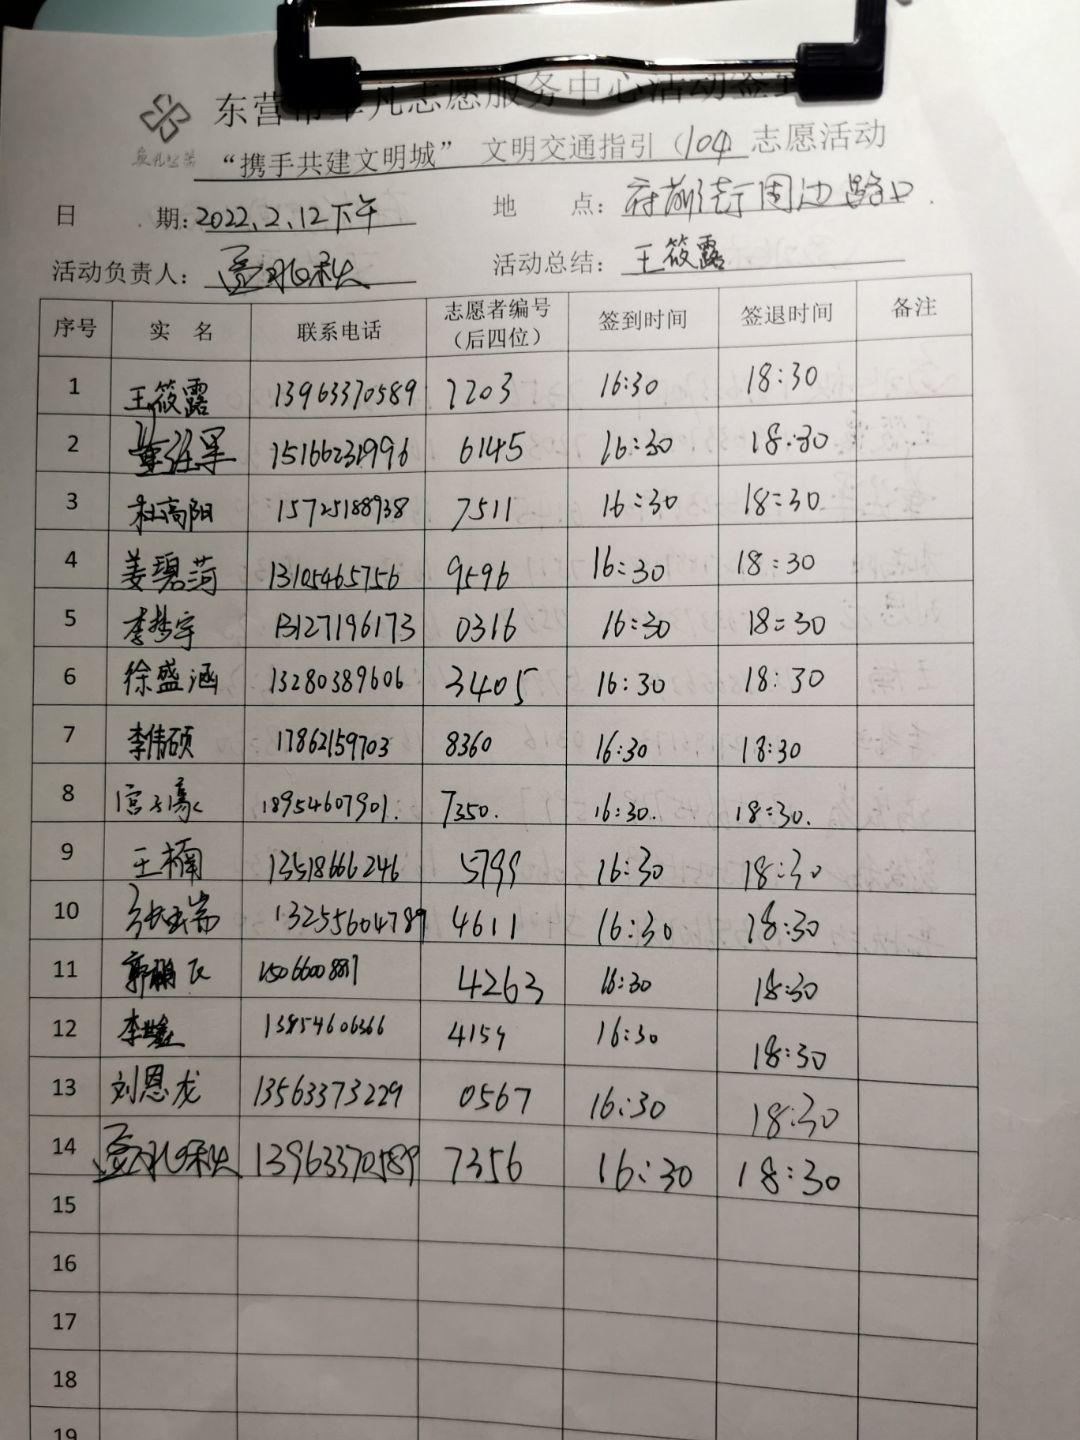 东营市 凡志愿服务中心活动签到
“携手共建文明城” 文明交通指引（104 志愿活动
日 期：2022.2.12下午 地 点：府前街周边路口.
活动负责人： 活动总结：王筱露
序号 实 名 联系电话 志愿者编号（后四位） 签到时间 签退时间 备注
1 王筱露 13963370589 7203 16:30 18:30
2 15166231996 6145 16:30 18:30
3 杜高阳 15725188938 7511 16:30 18:30
4 姜碧菏 13105465756 9596 16:30 18:30
5 李梦宇 13127196173 0316 16:30 18:30
6 徐盛涵 13280389606 3405 16:30 18:30
7 李伟硕 17862159703 8360 16:30 18:30
8 宫子豪 18954607901. 7350. 16:30. 18:30.
9 王楠 13518666246 5799 16:30 18:30
10 张玉瑞 13255604789 4611 16:30 18:30
11 郭鹏飞 4263 16:30 18:30
12 李 13854606366 4159 16:30 18:30
13 刘恩龙 13563373229 0567 16:30 18:30
14 13963370589 7356 16:30 18:30
15
16
17
18
19